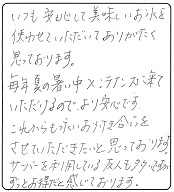 いつも安心して美味しいお水を
使わせていただいてありがたく
思っております。
毎年夏の暑い中メンテナンスに来て
いただけるのでより安心です。
これからも永いお付き合いを
させていただきたいと思っております。
サーバーを利用している友人も多々いますが
ずっとお得だと感じております。